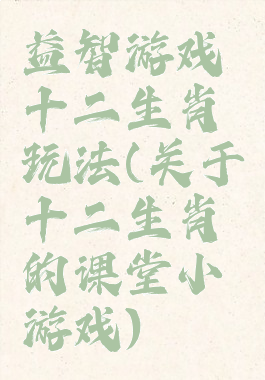 益智游戏
十二生肖
玩法(关于
十二生肖
的课堂小
游戏)